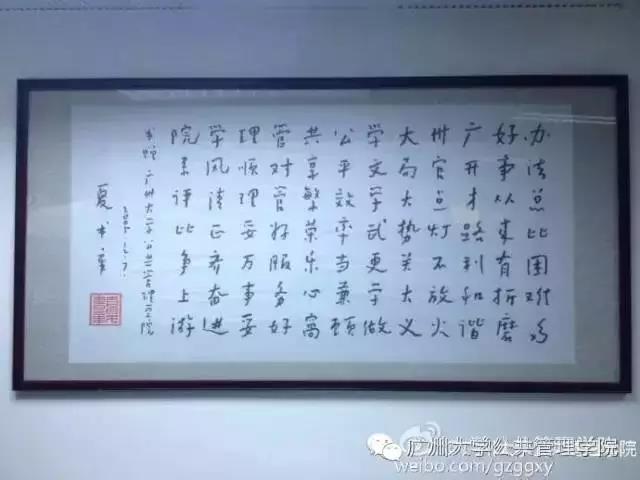 办法总比困难多
好事从来有折磨
广开才路利和谐
州官点灯不放火
大局大势关大义
学文学武更学做
公平效率当兼顾
共享繁荣乐心窝
管对管好服务好
理顺理妥万事妥
学风清正齐奋进
院系评比争上游
书赠广州大学公共管理学院
夏书章
广州大学公共管理学院
weibo.com/gzggxy